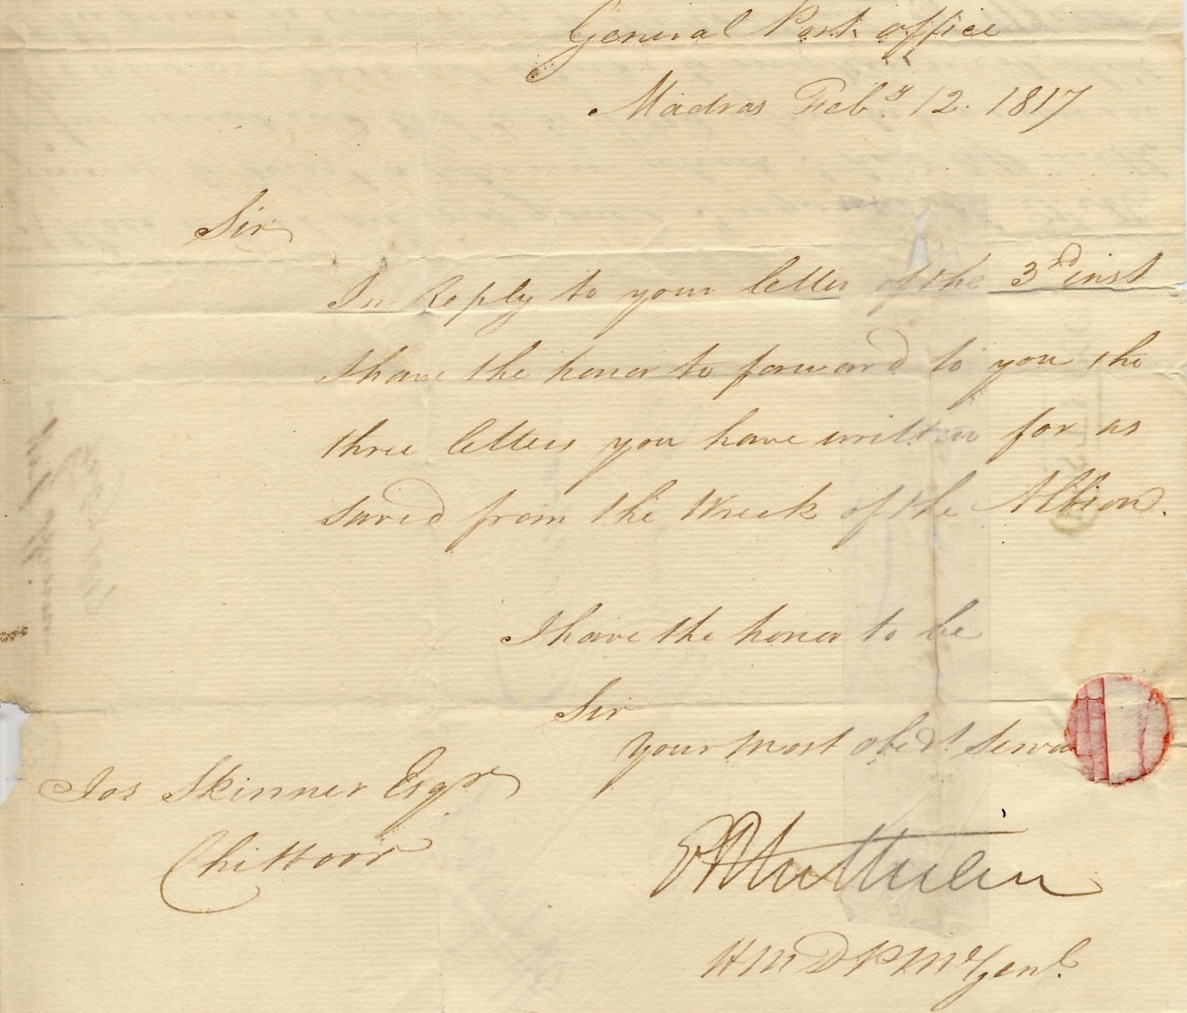 General Post office
Madras Feby 12. 1817
Sir
In Reply to your letter of the 3rd inst
I have the honor to forward to you the
three letters you have written for as
saved from the Wreck of the Albion.
I have the honor to be
Sir
your most obedt Serva
Jos Skinner Esqr
Chittoor
H M D P Mr Genl.